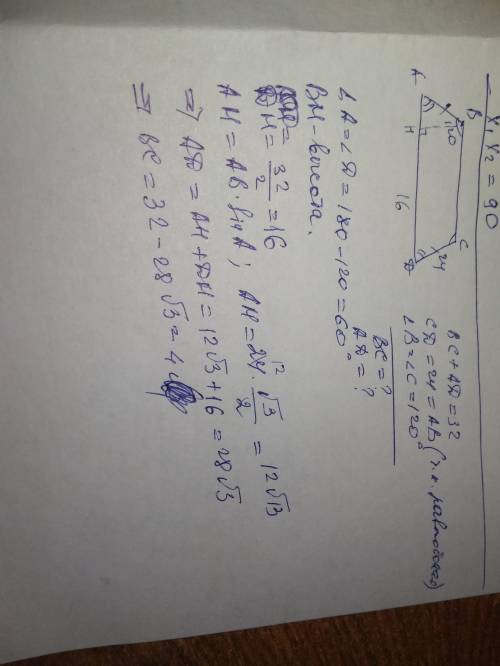 = x₁ x₂ = 90
B
120
C
24
A
H
16
D
BC + AD = 32
CD = 24 = AB (т.к. равнобокая)
∠B = ∠C = 120°
BC = ?
AD = ?
∠A = ∠D = 180 - 120 = 60°
BH - высота.
DH = 32/2 = 16
AH = AB · sin A; AH = 24 · √3/2 = 12√13
12
⇒ AD = AH + DH = 12√3 + 16 = 28√3
⇒ BC = 32 - 28√3 = 4